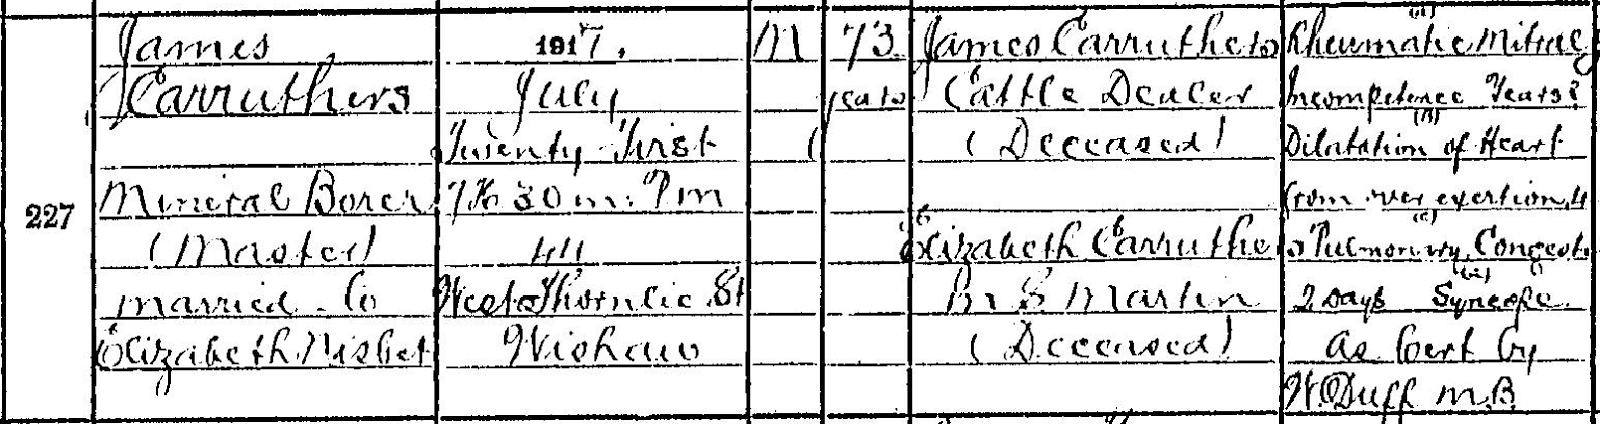 227
James
Carruthers
Mineral Borer
(Master)
married to
Elizabeth Nisbet
1917.
July
Twenty First
7h 30m. Pm
44
West Thornlie St
Wishaw
M
73
years
James Carruthers
Cattle Dealer
(Deceased)
Elizabeth Carruthers
M. S. Martin
(Deceased)
(a)
Rheumatic Mitral
Incompetence Years?
(b)
Dilatation of Heart
from over exertion
(c)
Pulmonary Congest
(d)
2 Days Syncope
As Cert by
W. Duff M.B.